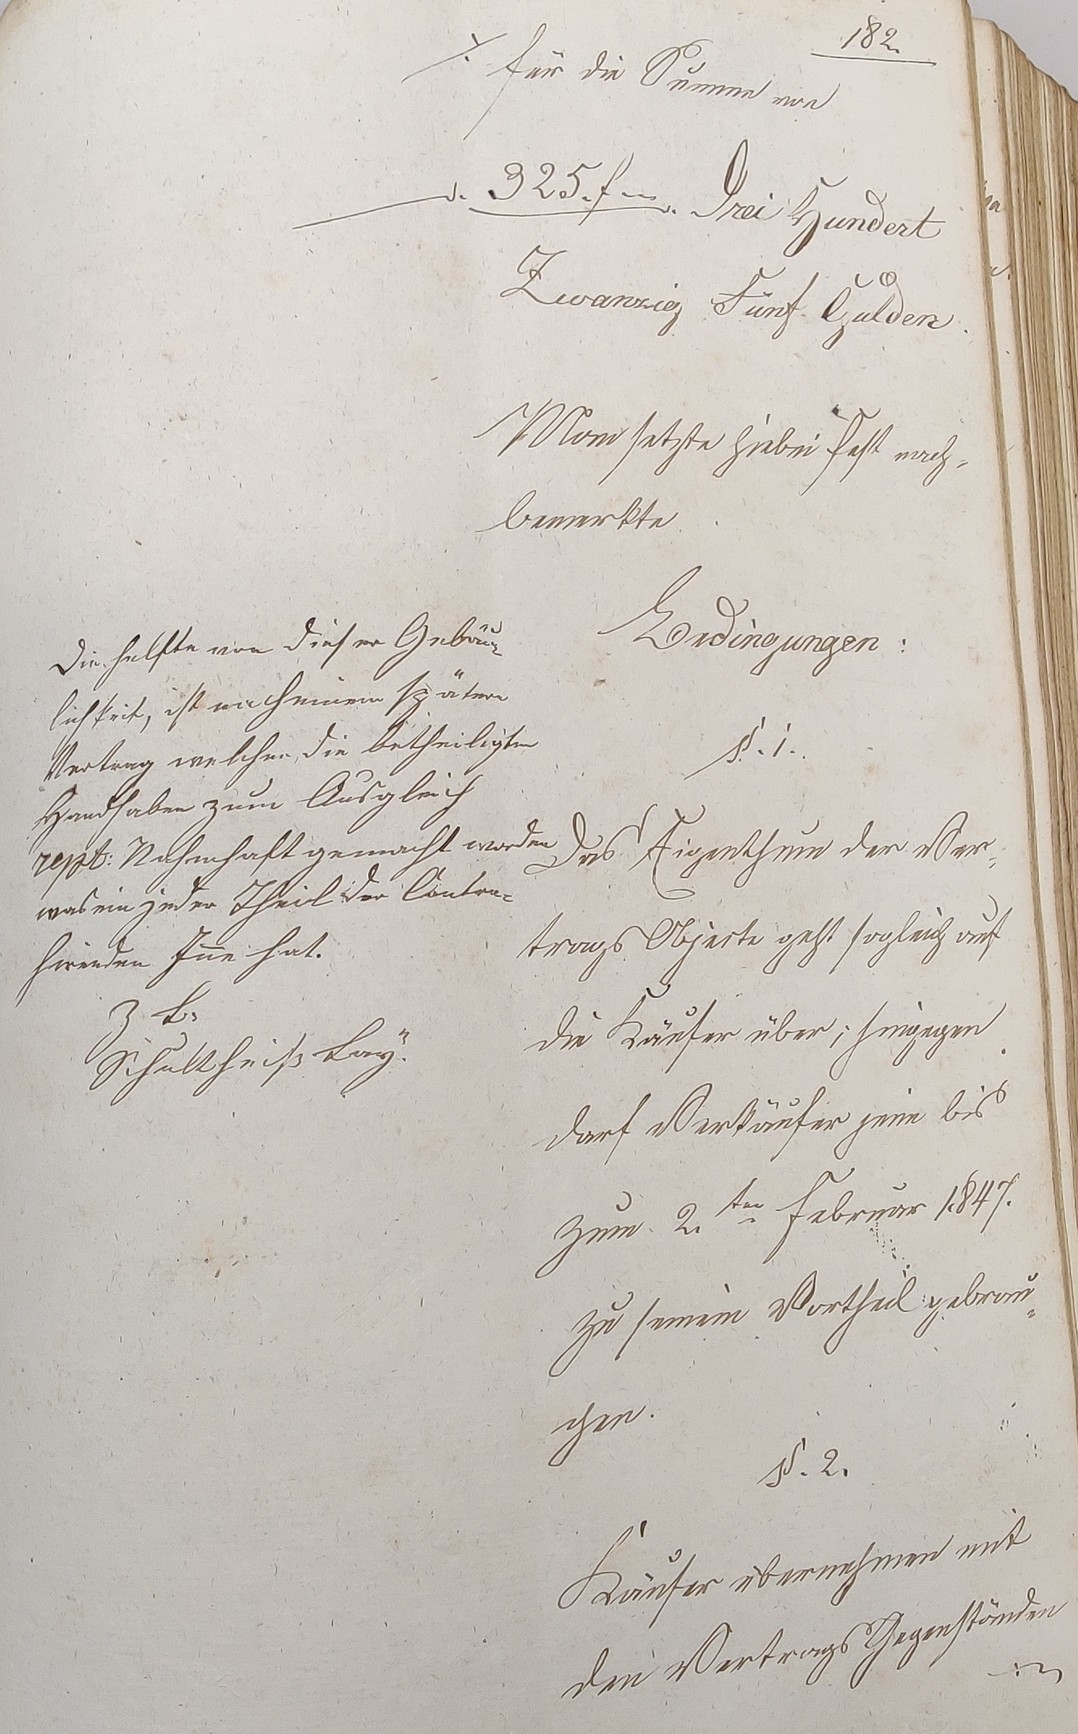 182.
für die Summe von
325. f Drei Hundert
Zwanzig Fünf Gulden.
Man setzte hiebei fest nach-
bemerkte
Bedingungen:
§. 1.
Das Eigenthum der Ver-
trags Objecte geht sogleich auf
die Käufer über; hingegen
darf Verkäufer jene bis
zum 2.ten Februar 1847.
zu seinem Vortheil gebrau-
chen.
§. 2.
Käufer übernehmen mit
den Vertrags Gegenständen
Die helfte von dieser Gebäu-
lichkeit, ist nach einem spätern
Vertrag welchen die betheiligten
Handhaben zum Ausgleich
rept: Nahmhaft gemacht worden
was ein jeder Theil der Contra-
hirenden Inne hat.
Z. B.
Schultheiß Bay.